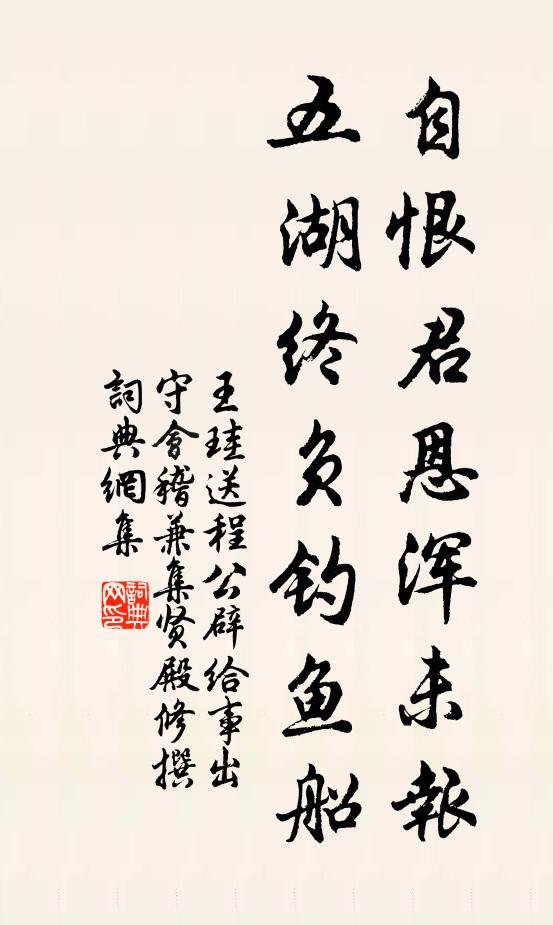 自恨君恩浑未報
五湖终负钓鱼船
王珪送程公辟给事出
守會稽兼集贤殿修撰
詞典網集
詞典网印